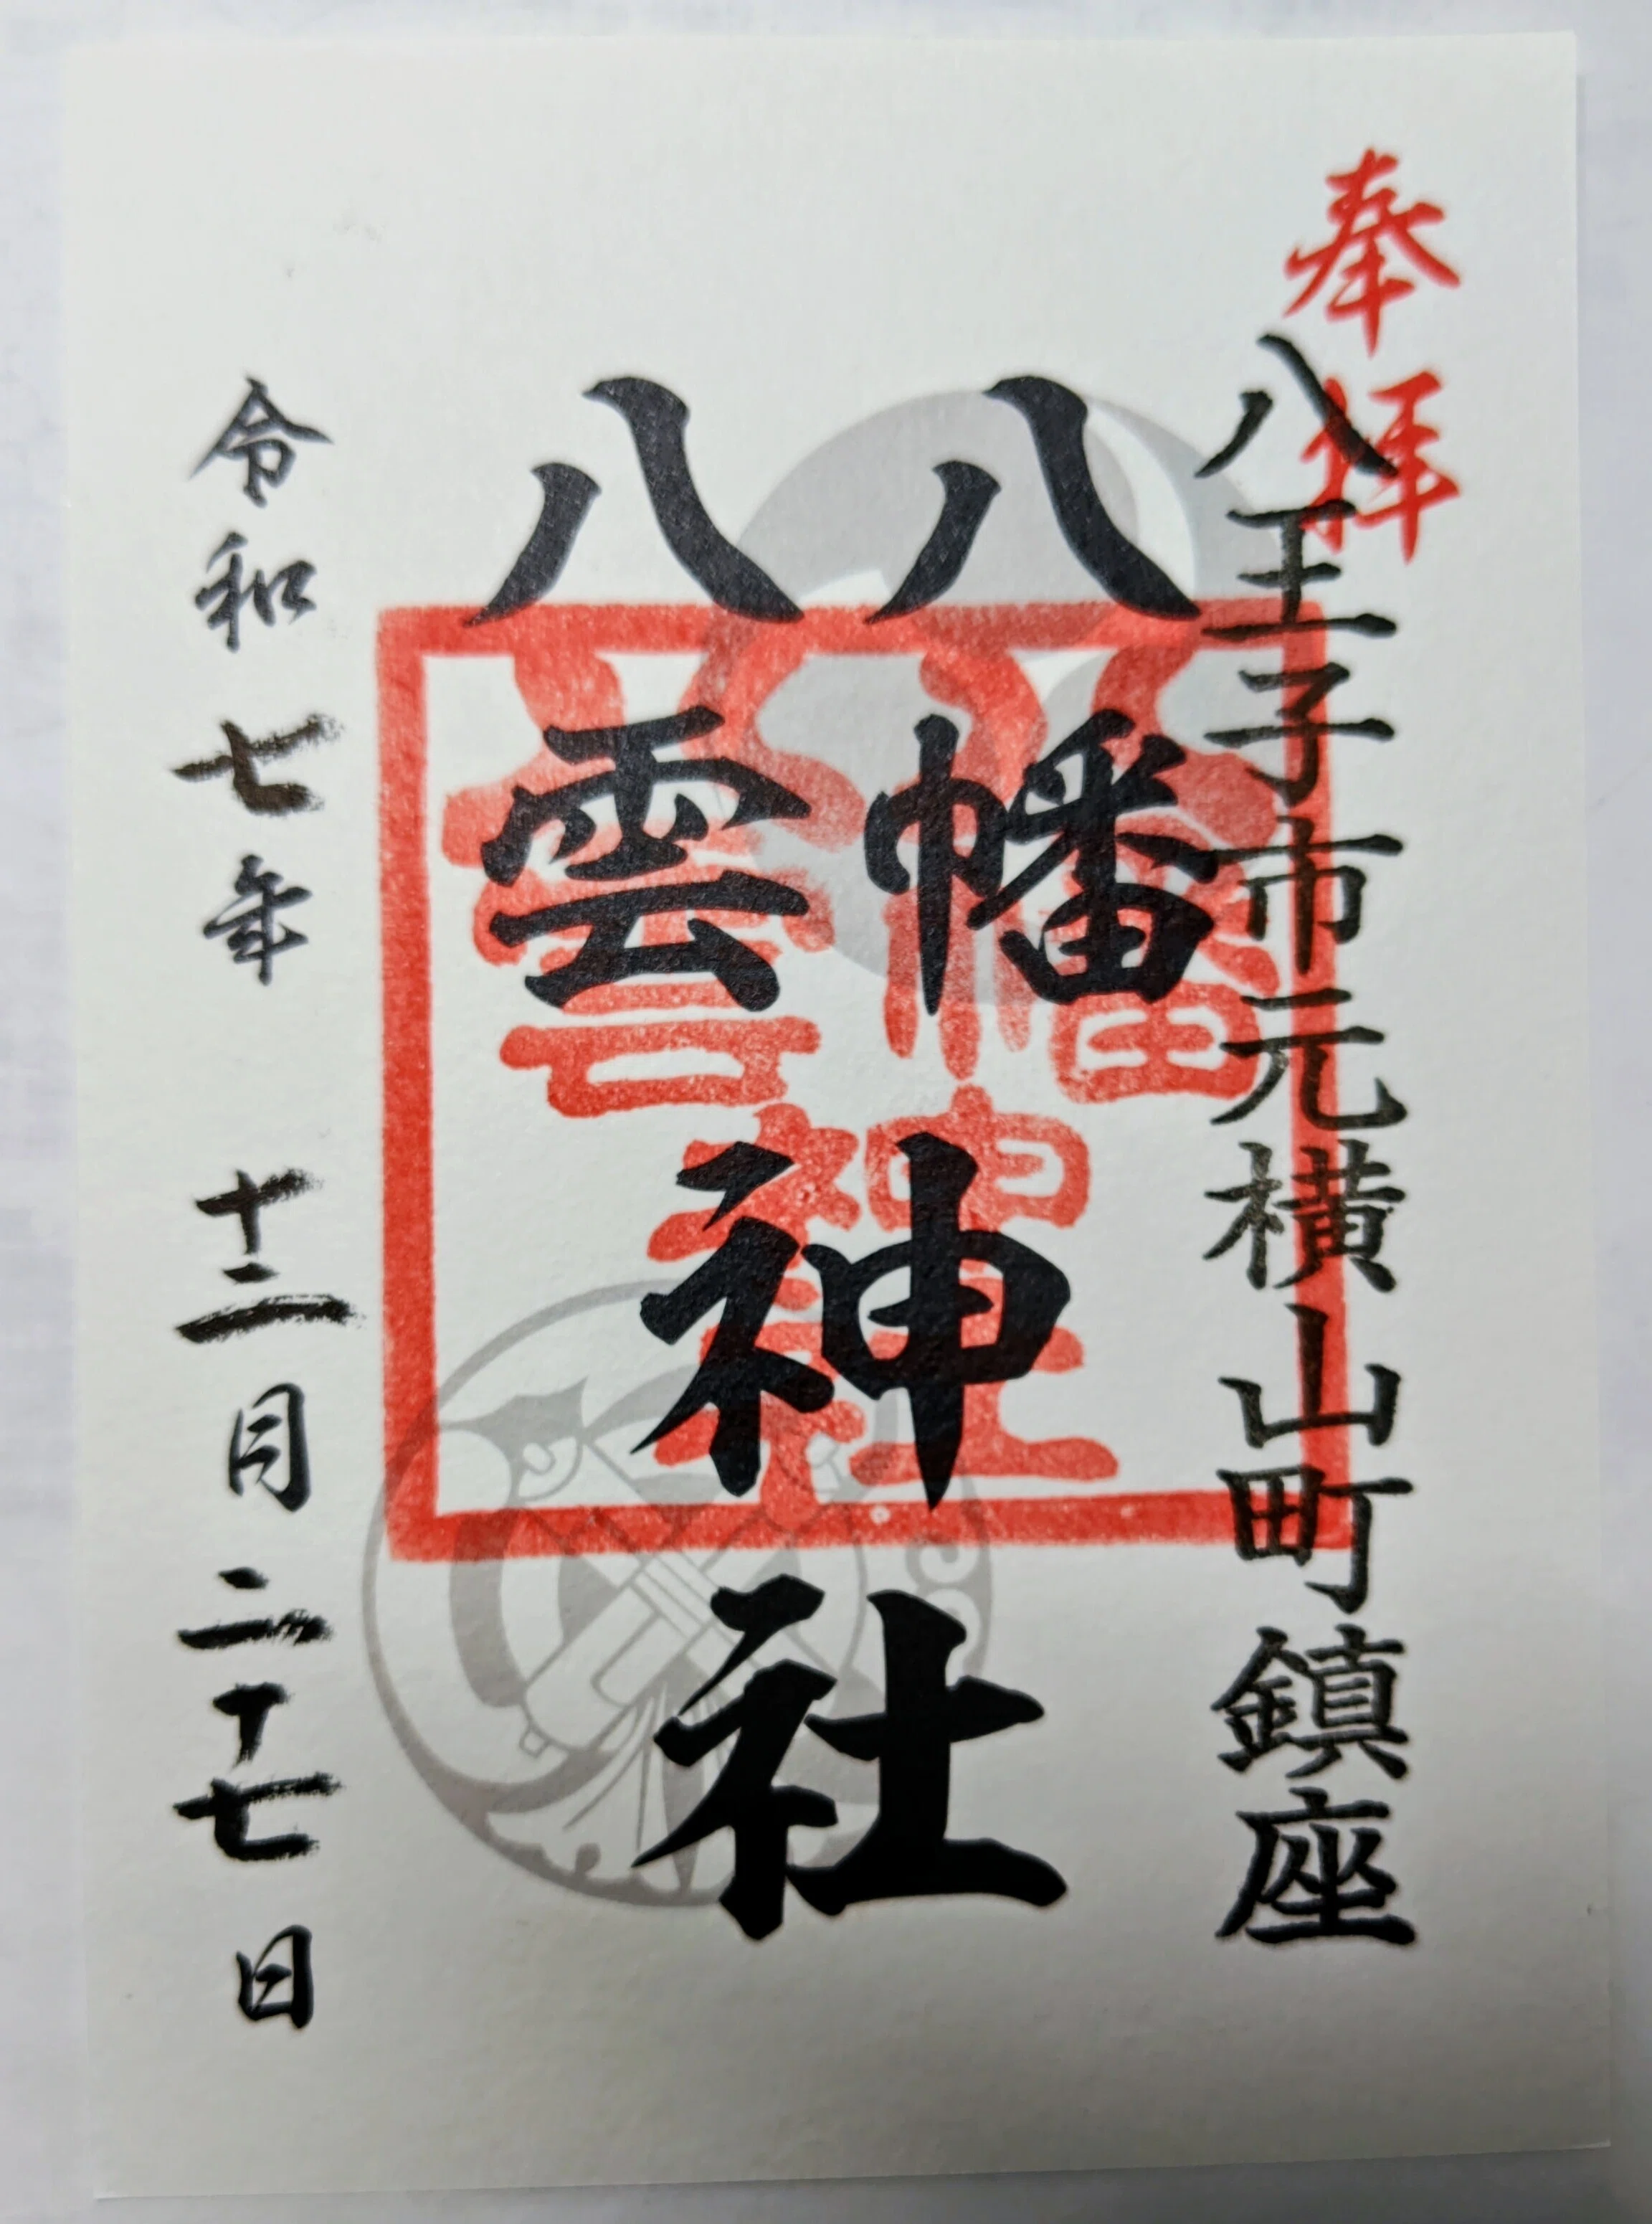 奉拝
八王子市元横山町鎮座
八幡
八雲
神社
八幡
八雲
神社
令和七年 十二月二十七日